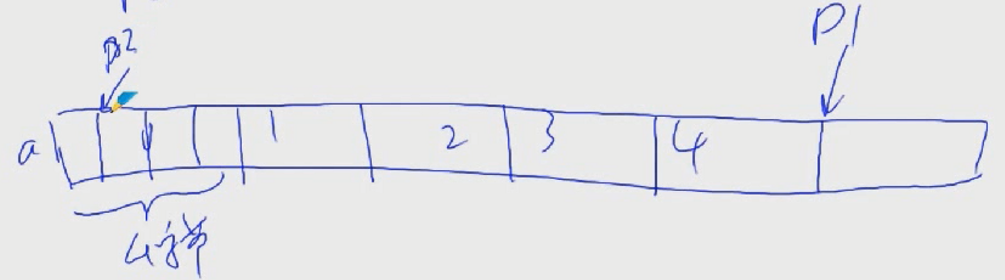 p2
P1
a 1 2 3 4
4字节